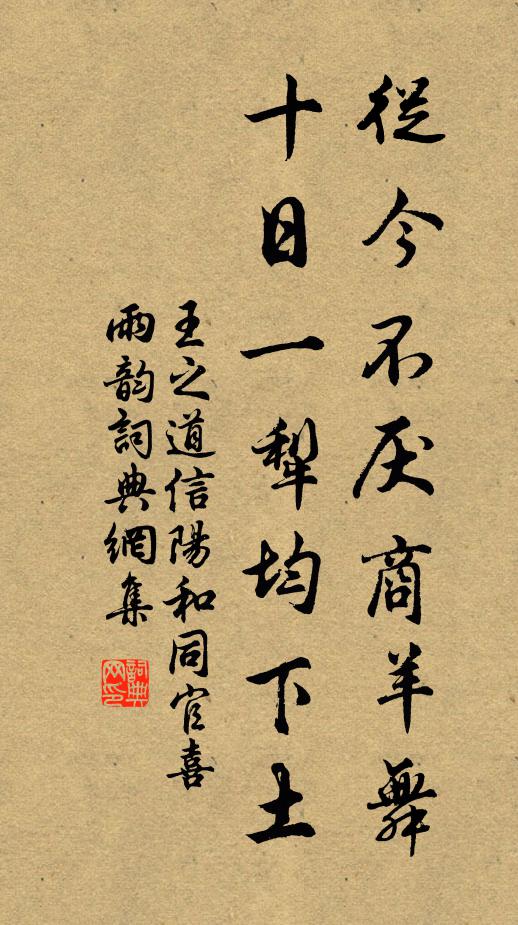 從今不厌商羊舞
十日一犁均下土
王之道信陽和同官喜
雨韵詞典網集
詞典网印